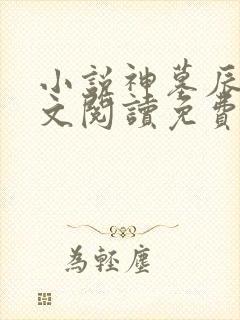 小說神墓辰
文閱讀免費
為輕塵